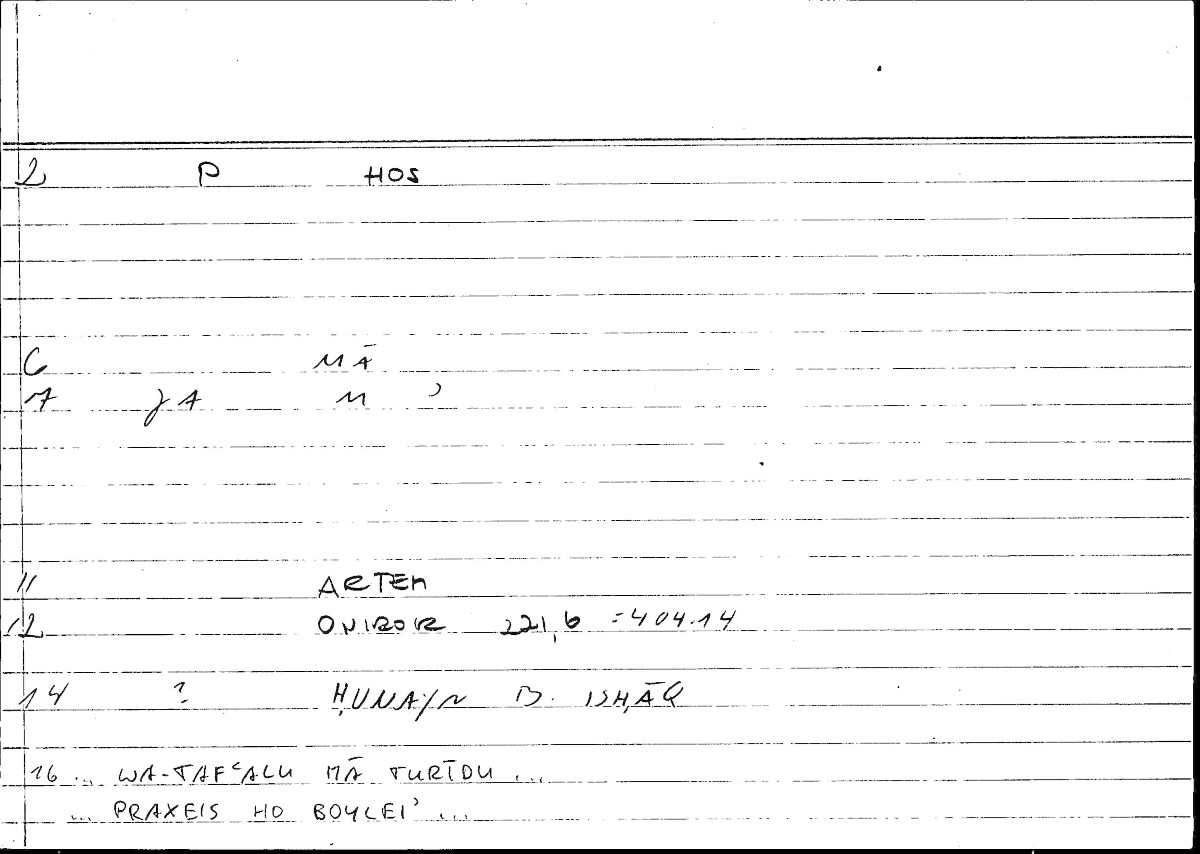 2 P HOS
6 MĀ
7 JA M ʾ
11 ARTEM
12 ONIROKR 221,6 =404.14
14 ? ḤUNAYN B. ISḤĀQ
16 ... WA-TAFʿALU MĀ TURĪDU ...
... PRAXEIS HO BOYLEI' ...